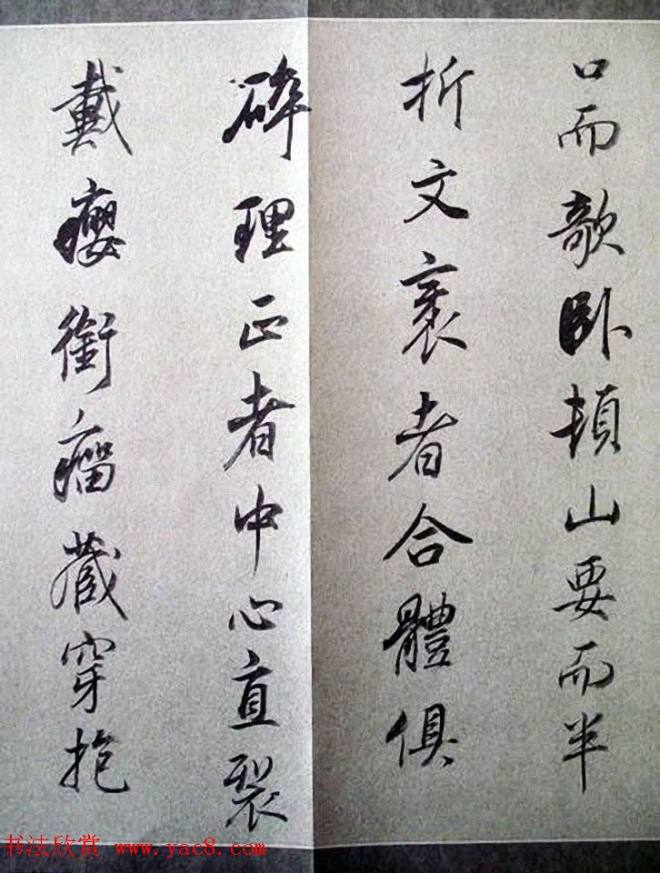 口而欹卧頓山要而半
折文衺者合體俱
碎理正者中心直裂
戴癭銜瘤藏穿抱
书法欣赏 www.yac8.com